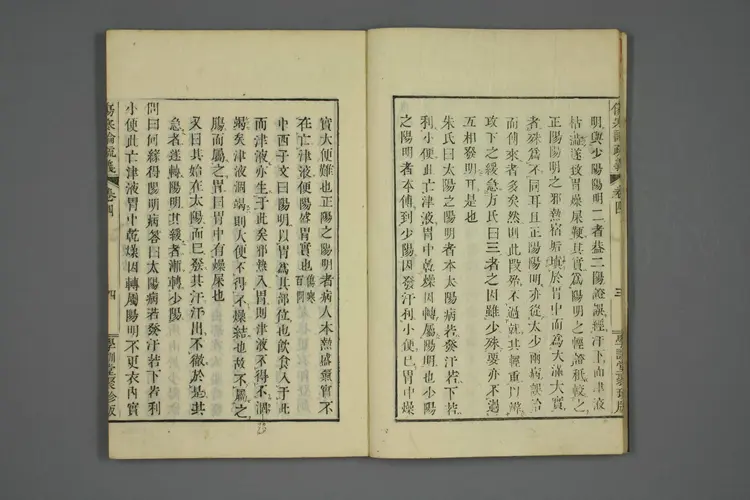 傷寒論疏義 卷四 三 學訓堂聚珍版
明與少陽陽明二者益二陽證誤經汗下而津液
枯濇遂致胃燥屎鞕其實爲陽明之輕證秖較之
正陽陽明之邪熱宿垢填於胃中而爲大滿大實
者殊爲不同耳且正陽陽明亦從太少兩病誤治
而傳來者多矣然則此段殊不過就其輕重以辨
攻下之緩急方氏曰三者之因雖少殊要亦不過
互相發明耳是也
朱氏曰太陽之陽明者本太陽病若發汗若下若
利小便此亡津液胃中乾燥因轉屬陽明也少陽
之陽明者本傳到少陽因發汗利小便已胃中燥
實大便難也正陽之陽明者病人本熱盛實不
在亡津液便陽盛胃實也傷寒百問
中西子文曰陽明以胃爲其部位也飲食入于此
而津液亦生于此矣邪熱入胃則津液不得不涸
竭矣津液涸竭則大便不得不燥結也故不屬之
腸而屬之胃曰胃中有燥屎也
又曰其始在太陽而巳發其汗汗出不徹於是其
急者遂轉陽明其緩者漸轉少陽
問曰何緣得陽明病荅曰太陽病若發汗若下若利
小便此亡津液胃中乾燥因轉屬陽明不更衣內實
傷寒論疏義 卷四 四 學訓堂聚珍版